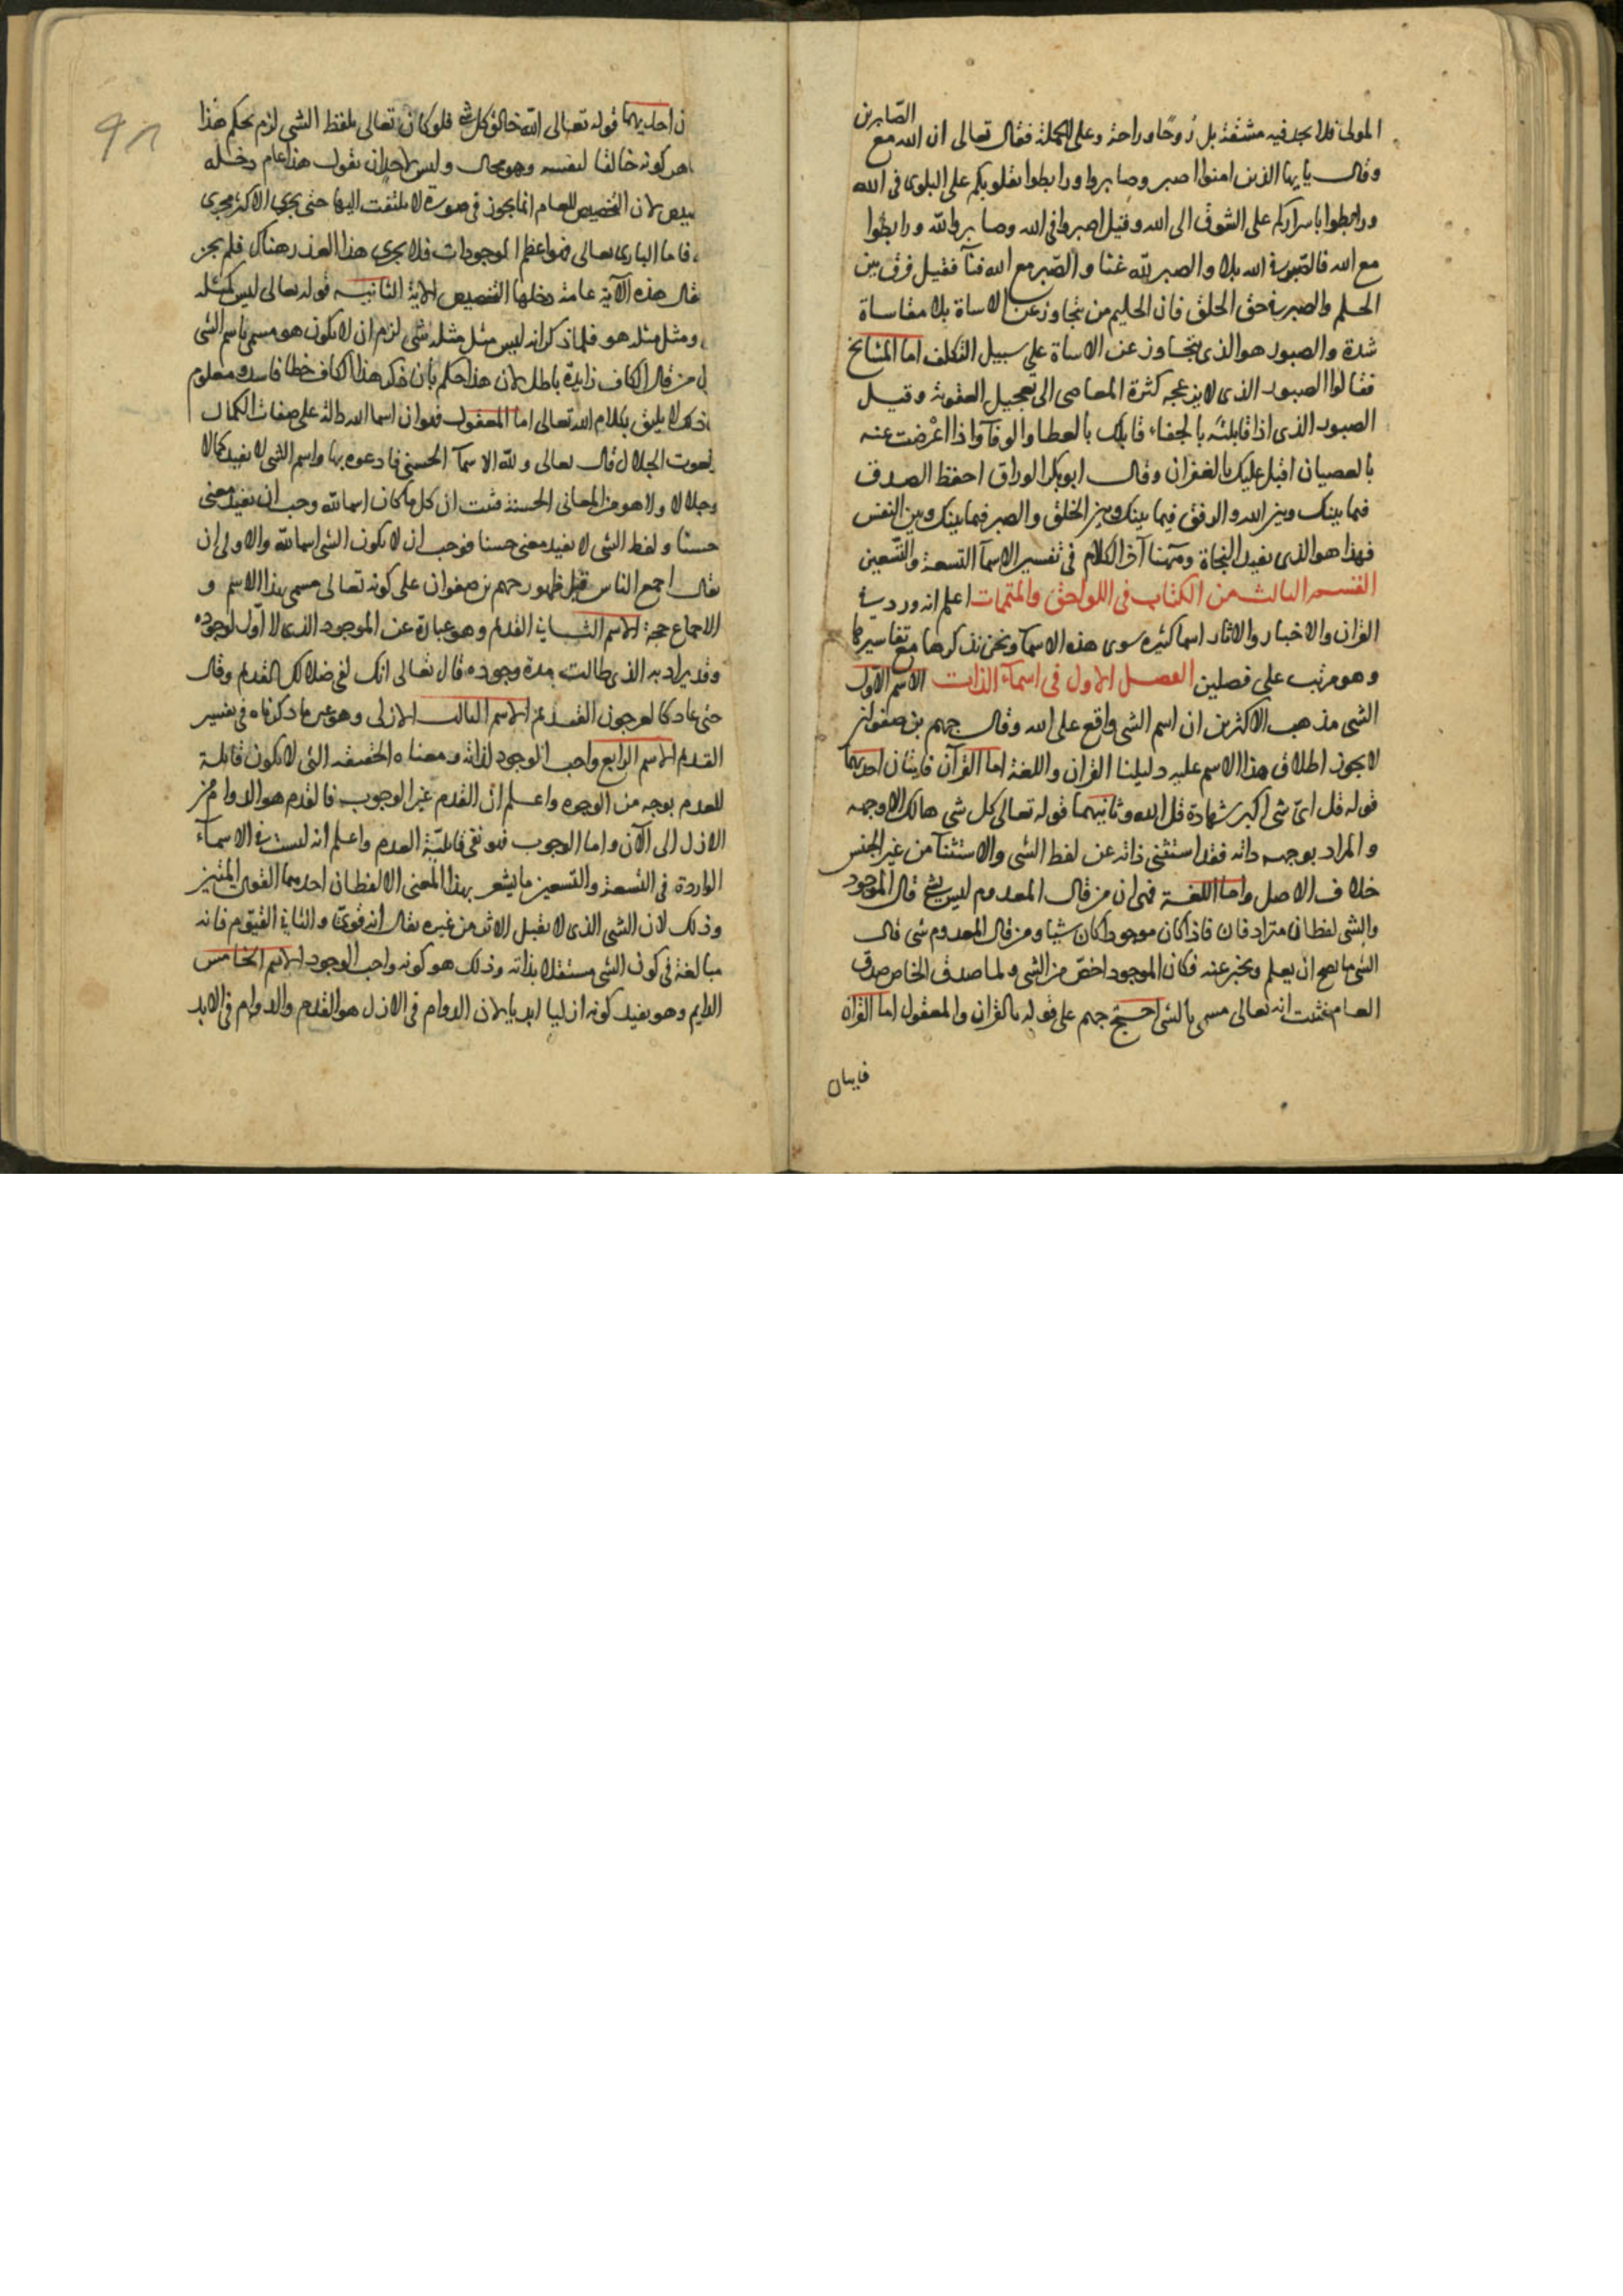 المولى فلا يجد فيه مشقة بل روحا وراحة وعلى الجملة فقال تعالى ان الله مع الصابرين
وقال يايها الذين امنوا اصبروا وصابروا ورابطوا بقلوبكم على البلوى فى الله
ورابطوا باسراركم على الشوق الى الله وقيل اصبروا فى الله وصابروا لله ورابطوا
مع الله فالصبر فى الله بلا والصبر لله غنا والصبر مع الله فنآ فقيل فرق بين
الحلم والصبر فى حق الخلق فان الحليم من يتجاوز عن الاساة بلا مقاساة
شدة والصبور هو الذى يتجاوز عن الاساة على سبيل التكلف اما المشايخ
فقالوا الصبور الذى لا يزعجه كثرة المعاصى الى تعجيل العقوبة وقيل
الصبور الذى اذا قابلته بالجفاء قابلك بالعطا والوفآ واذا اعرضت عنه
بالعصيان اقبل عليك بالغفران وقال ابو بكر الوراق احفظ الصدق
فيما بينك وبين الله والرفق فيما بينك وبين الخلق والصبر فيما بينك وبين النفس
فهذا هو الذى يفيد النجاة وههنا آخر الكلام فى تفسير الاسمآ التسعة والتسعين
القسم الثالث من الكتاب فى اللواحق والمتممات اعلم انه ورد فى
القران والاخبار والاثار اسما كثيره سوى هذه الاسمآ ونحن نذكرها مع تفاسيرها
وهو مرتب على فصلين الفصل الاول فى اسمآء الذات الاسم الاول
الشى مذهب الاكثرين ان اسم الشى واقع على الله وقال جهم بن صفوان
لا يجوز اطلاق هذا الاسم عليه دليلنا القران واللغة اما القرآن فايتان احديهما
قوله قل اى شى اكبر شهادة قل الله وثانيهما قوله تعالى كل شى هالك الا وجهه
والمراد بوجهه ذاته فقد استثنى ذاته عن لفظ الشى والاستثنآ من غير الجنس
خلاف الاصل واما اللغة فهى ان من قال المعدوم ليس بشى قال الموجود
والشى لفظان مترادفان فاذا كان موجودا كان شيا ومن قال المعدوم شى قال
الشى ما يصح ان يعلم ويخبر عنه فكان الموجود اخص من الشى ولما صدق الخاص صدق
العام فثبت انه تعالى مسمى بالشى احتج جهم على قوله بالقران والمعقول اما القران
فايتان
ن احديهما قوله تعالى الله خالق كل شى فلو كان تعالى بلفظ الشى لزم بحكم هذا
هر كونه خالقا لنفسه وهو محال وليس لاحد ان يقول هذا عام دخله
يص لان التخصيص للعام انما يجوز فى صورة لا يلتفت اليها حتى يجرى الاكثر مجرى
فاما البارى تعالى فهو اعظم الموجودات فلا يجرى هذا العذر هناك فلم يجز
يقال هذه الآية عامة دخلها التخصيص الاية الثانية قوله تعالى ليس كمثله
ومثل مثله هو فلما ذكر انه ليس مثل مثله شى لزم ان لا يكون هو مسمى باسم الشى
من قال الكاف زايدة باطل لان هذا حكم بان ذكر هذا الكاف خطا فاسد ومعلوم
ذلك لا يليق بكلام الله تعالى اما المعقول فهو ان اسما الله دالة على صفات الكمال
نعوت الجلال قال تعالى ولله الاسمآ الحسنى فادعوه بها واسم الشى لا يفيد كمالا
وجلالا ولا هو من المعانى الحسنة فثبت ان كل ما كان اسما لله وجب ان يفيد معنى
حسنا ولفظ الشى لا يفيد معنى حسنا فوجب ان لا يكون الشى اسما لله والاولى ان
يقال اجمع الناس قبل ظهور جهم بن صفوان على كونه تعالى مسمى بهذا الاسم و
الاجماع حجة الاسم الثانى القديم وهو عبارة عن الموجود الذى لا اول لوجوده
وقد يراد به الذى طالت مدة وجوده قال تعالى انك لفى ضلالك القديم وقال
حتى عاد كالعرجون القديم الاسم الثالث الازلى وهو عين ما ذكرناه فى تفسير
القديم الاسم الرابع واجب الوجود لذاته ومعناه الحقيقة التى لا يكون قابلة
للعدم بوجه من الوجوه واعلم ان القدم غير الوجوب فالقدم هو الدوام من
الازل الى الآن واما الوجوب فهو نفى قابلية العدم واعلم انه ليست فى الاسمآء
الواردة فى التسعة والتسعين ما يشعر بهذا المعنى الا لفظان احدهما القوى المتين
وذلك لان الشى الذى لا يقبل الاثر من غيره يقال انه قوى والثانى القيوم فانه
مبالغة فى كون الشى مستقلا بذاته وذلك هو كونه واجب الوجود الاسم الخامس
الدايم وهو يفيد كونه ازليا ابديا لان الدوام فى الازل هو القدم والدوام فى الابد